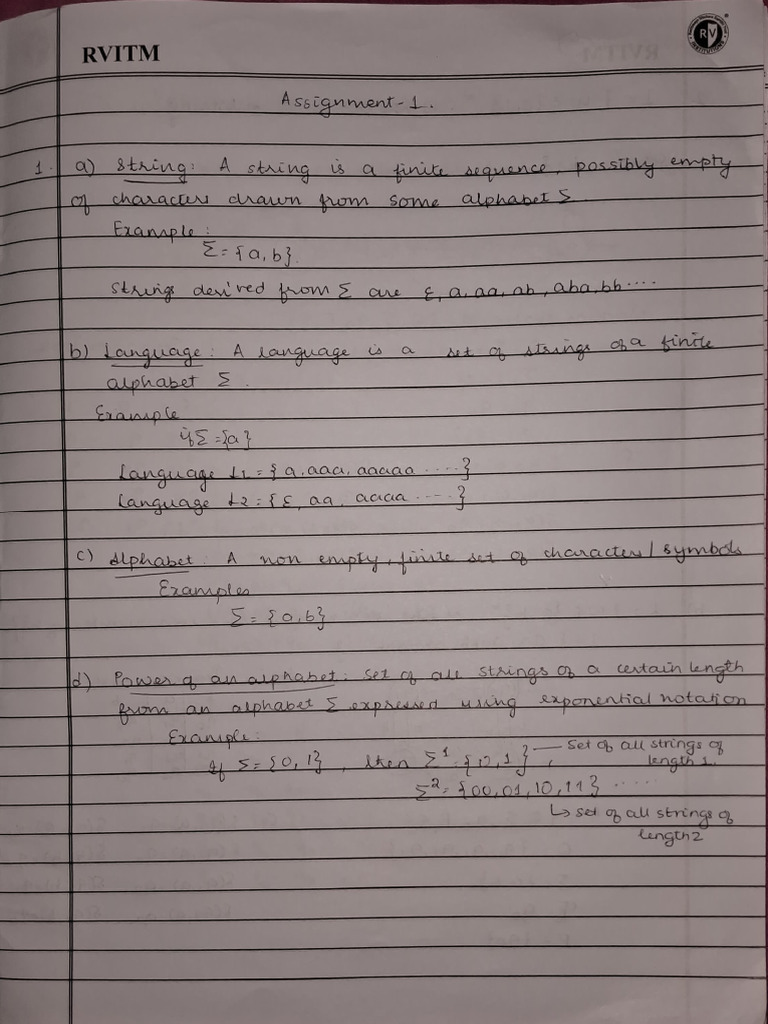 RVITM
RV
Assignment-1.
1. a) String: A string is a finite sequence, possibly empty
of characters drawn from some alphabet Σ.
Example:
Σ={a,b}.
Strings derived from Σ are ε, a, aa, ab, aba, bb ....
b) Language: A language is a set of strings of a finite
alphabet Σ.
Example
if Σ={a}
Language L1={a, aaa, aaaaa ....}
Language L2={ε, aa, aaaa ....}
c) Alphabet: A non empty, finite set of characters/symbols
Examples
Σ={a,b}
d) Power of an alphabet: Set of all strings of a certain length
from an alphabet Σ expressed using exponential notation
Example:
If Σ={0,1}, then Σ¹={0,1}, — Set of all strings of
length 1.
Σ²={00,01,10,11} .....
↳ set of all strings of
length 2